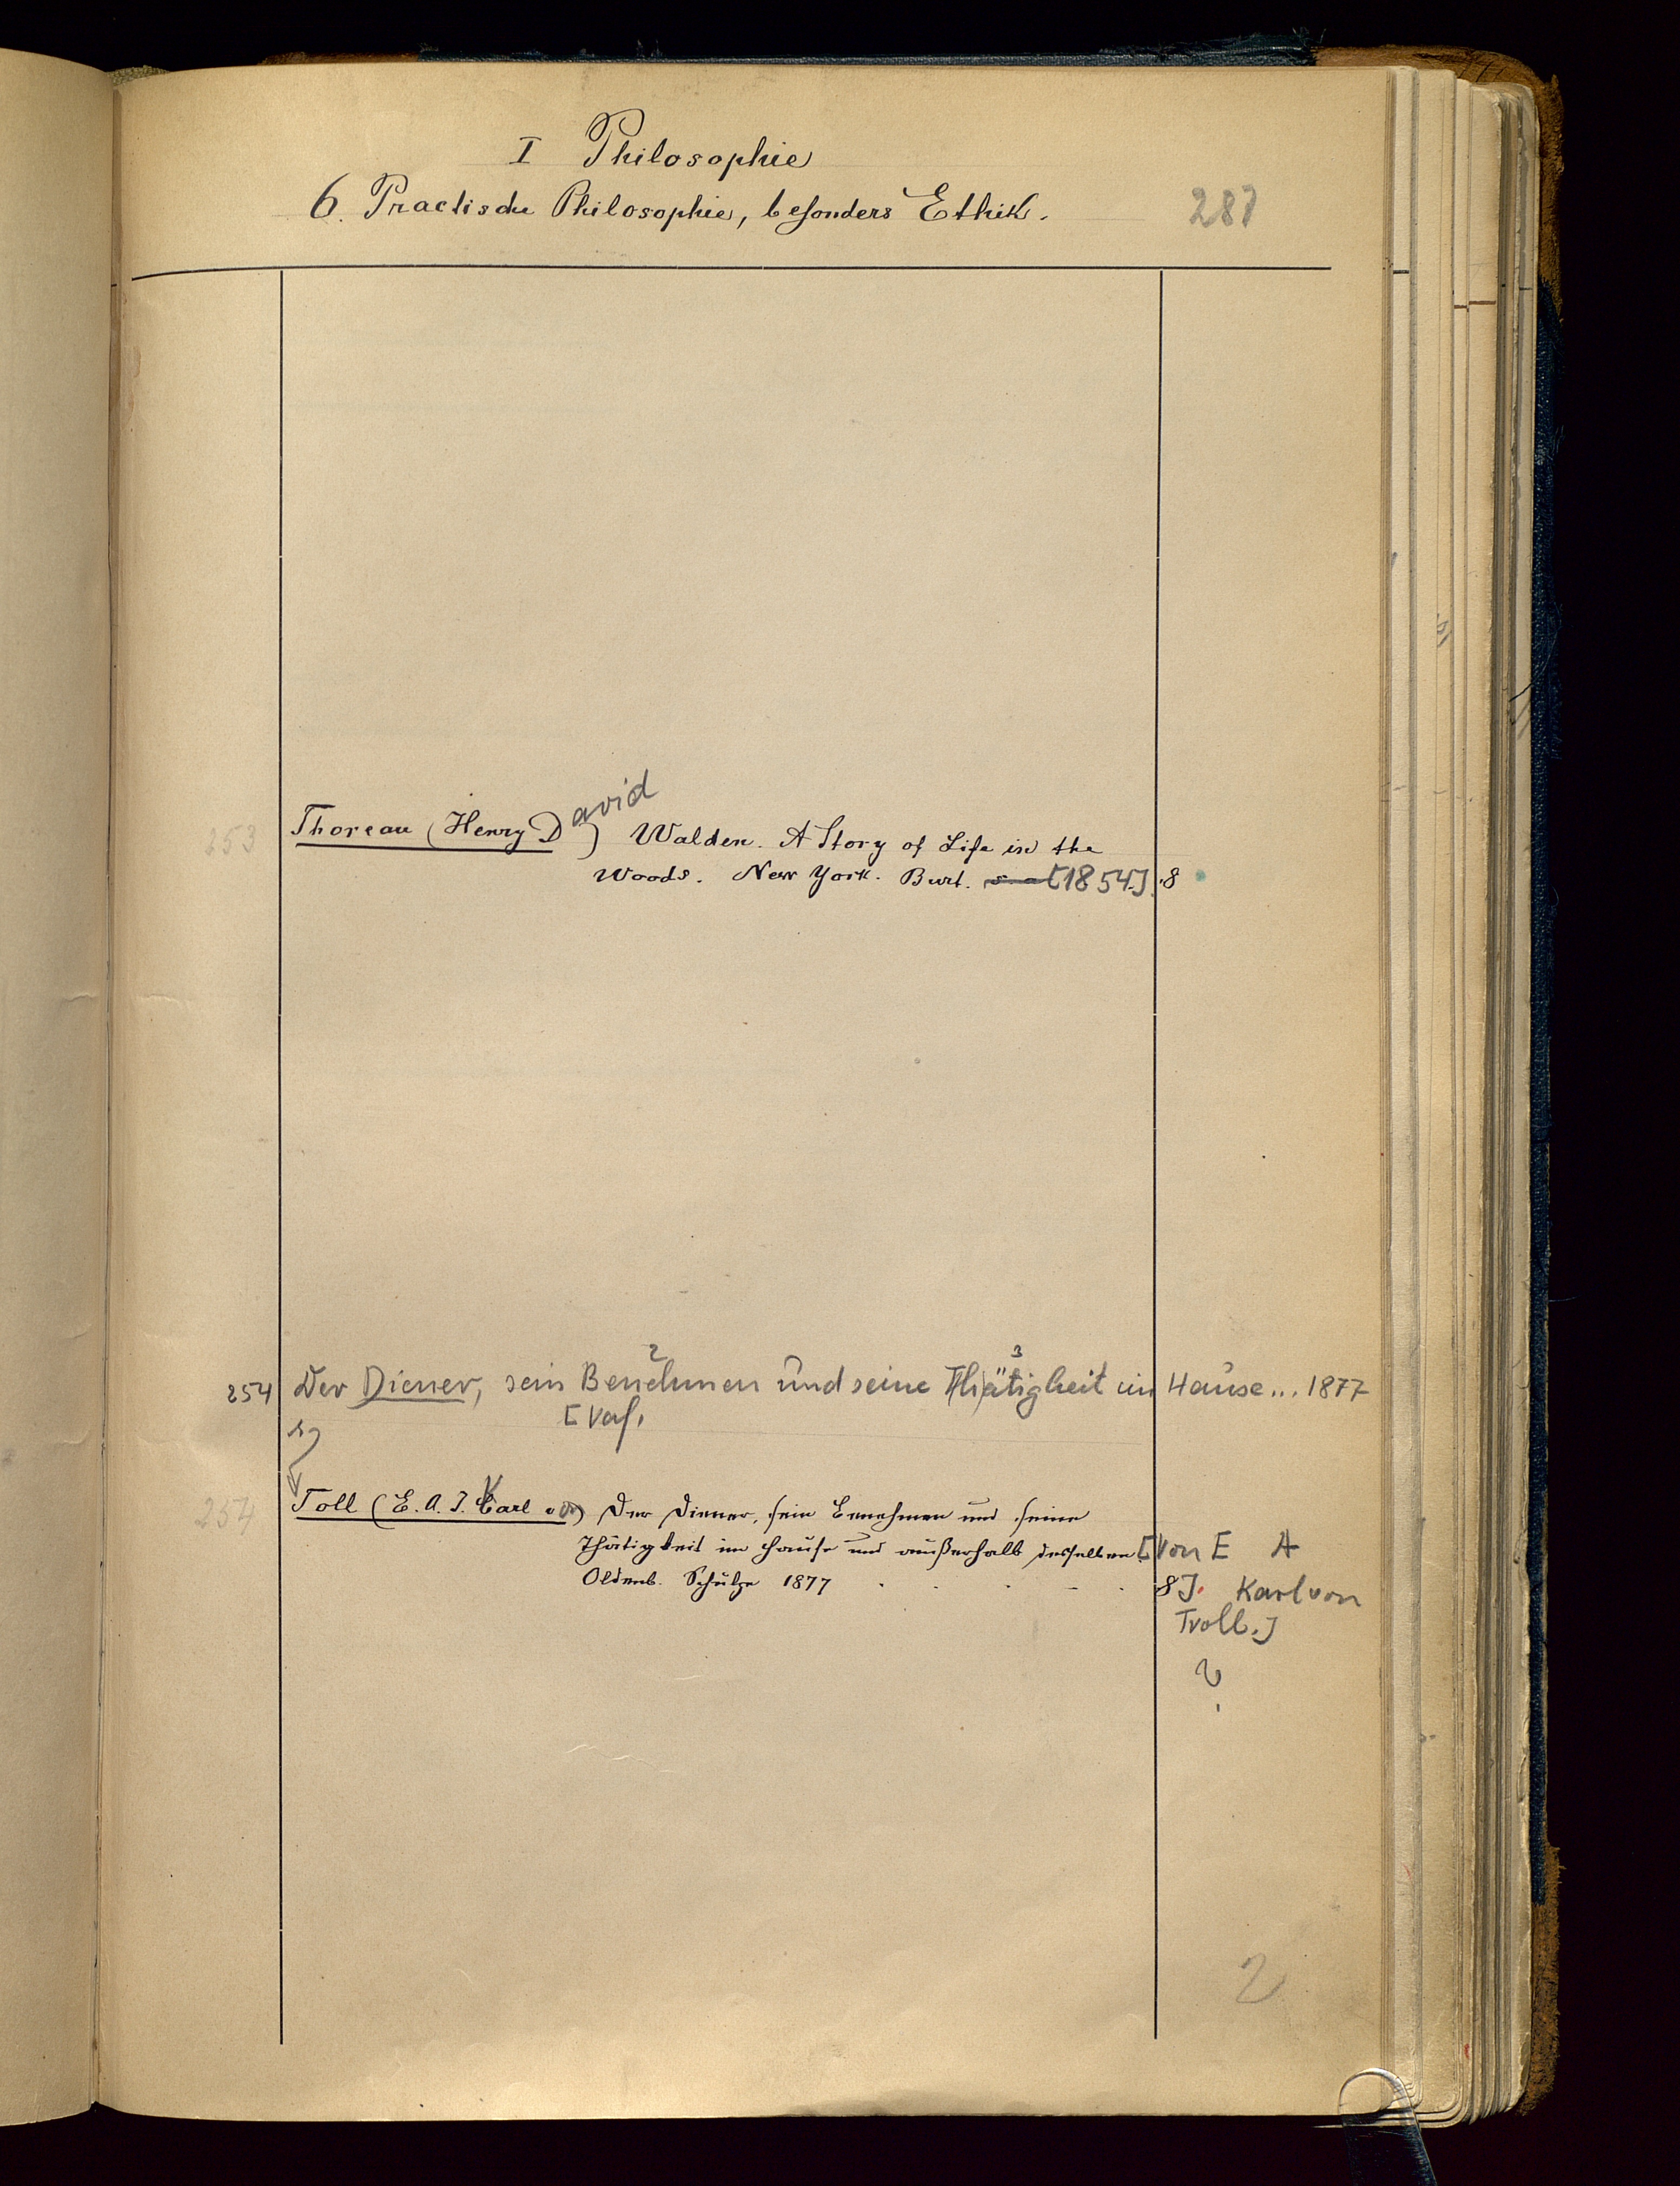 I Philosophie
6. Practische Philosophie, besonders Ethik.
287
253
Thoreau (Henry David) Walden. A Story of Life in the
Woods. New York. Burt. [1854]. 8
254 Der Diener, sein Benehmen und seine Thätigkeit im Hause... 1877
2 3
[Verf.
254
Toll (E. A. J. Karl von) Der Diener, sein Benehmen und seine
Thätigkeit im Hause und außerhalb desselben. [Von E A
Oldenb. Schulze 1877 8 J. Karl von
Troll.]
?
2